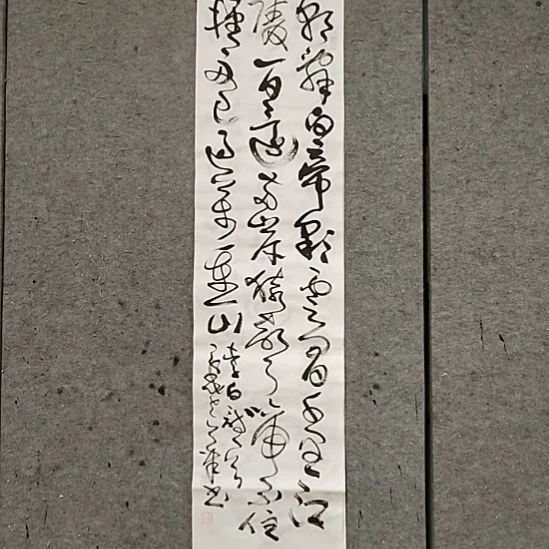 朝辞白帝彩云间千里江
陵一日还两岸猿声啼不住
轻舟已过万重山
李白诗
书